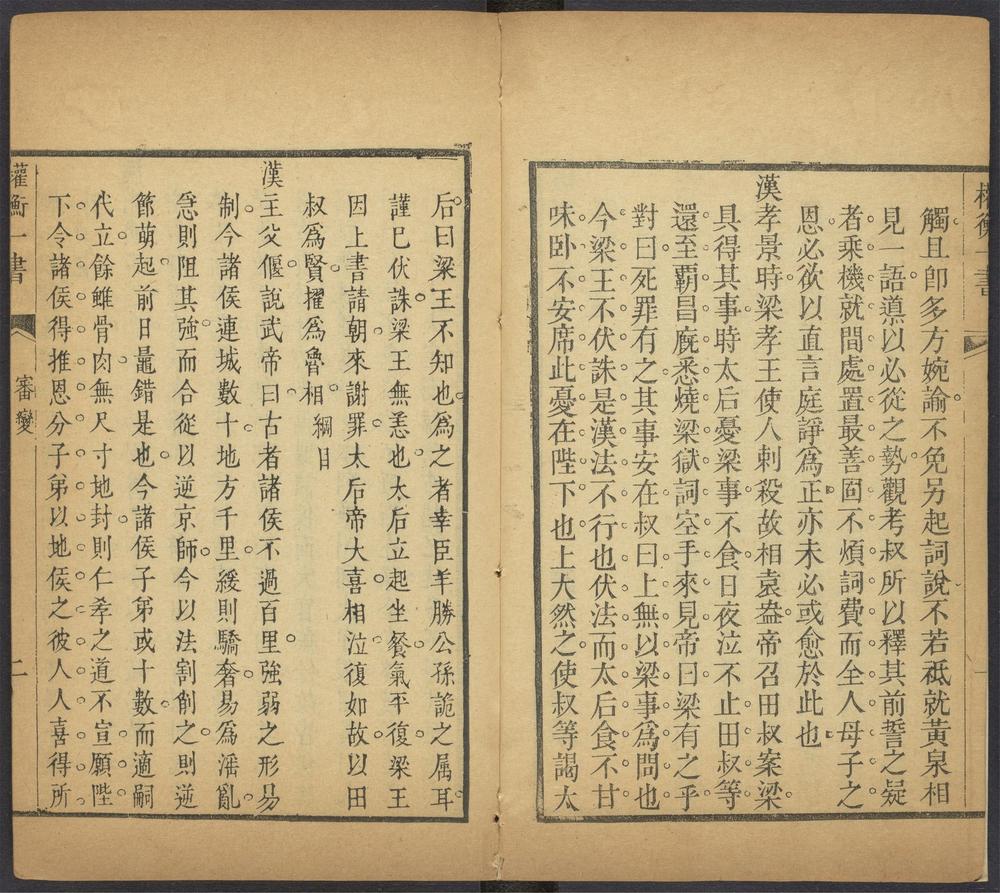 權衡一書
觸且卽多方婉諭不免另起詞說不若祗就黃泉相
見一語導以必從之勢觀考叔所以釋其前誓之疑
者乘機就間處置最善固不煩詞費而全人母子之
恩必欲以直言庭諍爲正亦未必或愈於此也
漢孝景時梁孝王使人刺殺故相袁盎帝召田叔案梁
具得其事時太后憂梁事不食日夜泣不止田叔等
還至覇昌廐悉燒梁獄詞空手來見帝曰梁有之乎
對曰死罪有之其事安在叔曰上無以梁事爲問也
今梁王不伏誅是漢法不行也伏法而太后食不甘
味卧不安席此憂在陛下也上大然之使叔等謁太
后曰梁王不知也爲之者幸臣羊勝公孫詭之属耳
謹已伏誅梁王無恙也太后立起坐餐氣平復梁王
因上書請朝來謝罪太后帝大喜相泣復如故以田
叔爲賢擢爲魯相 綱目
漢主父偃說武帝曰古者諸侯不過百里強弱之形易
制今諸侯連城數十地方千里緩則驕奢易爲淫亂
急則阻其強而合從以逆京師今以法割削之則逆
節萌起前日鼂錯是也今諸侯子弟或十數而適嗣
代立餘雖骨肉無尺寸地封則仁孝之道不宣願陛
下令諸侯得推恩分子弟以地侯之彼人人喜得所
權衡一書 審變 二